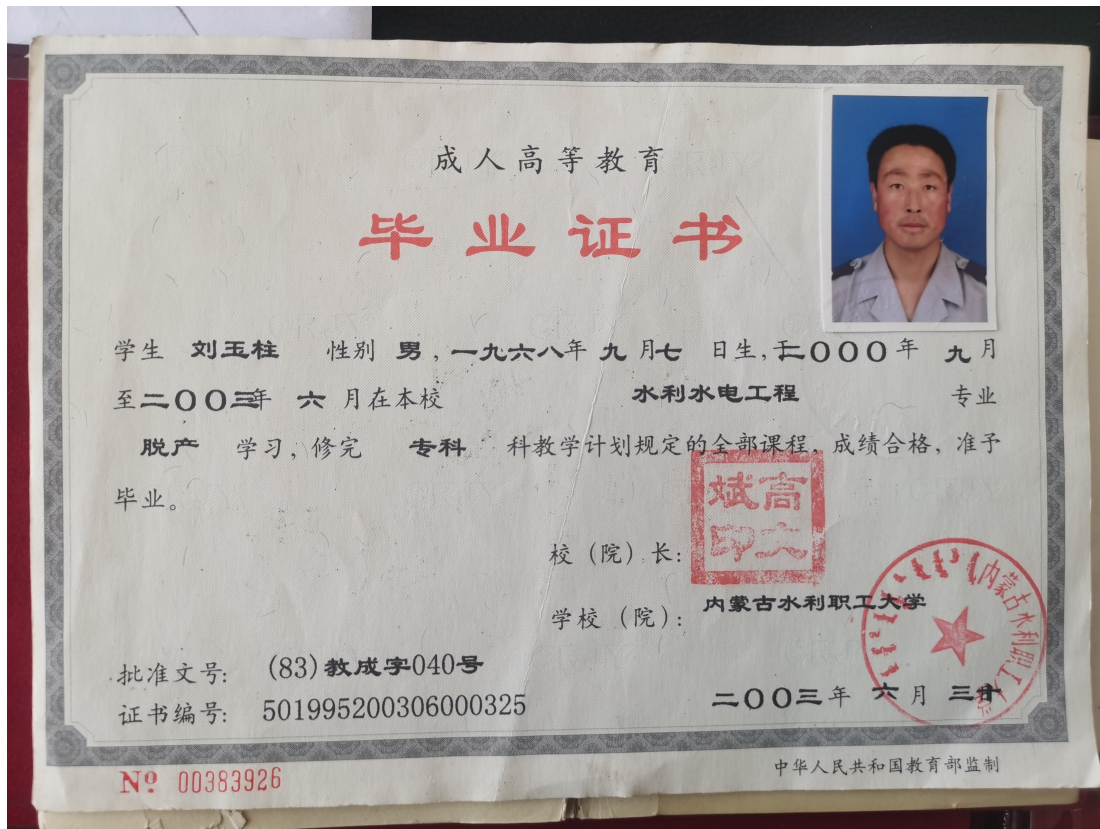 成人高等教育
毕业证书
学生 刘玉柱 性别 男，一九六八年 九 月七 日生，于二〇〇〇年 九 月
至二〇〇三年 六 月在本校 水利水电工程 专业
脱产 学习，修完 专科 科教学计划规定的全部课程，成绩合格，准予
毕业。
校（院）长：
高文斌印
学校（院）： 内蒙古水利职工大学
内蒙古水利职工大学
批准文号： (83)教成字040号
证书编号： 501995200306000325
二〇〇三年 六 月 三十
No 00383926
中华人民共和国教育部监制